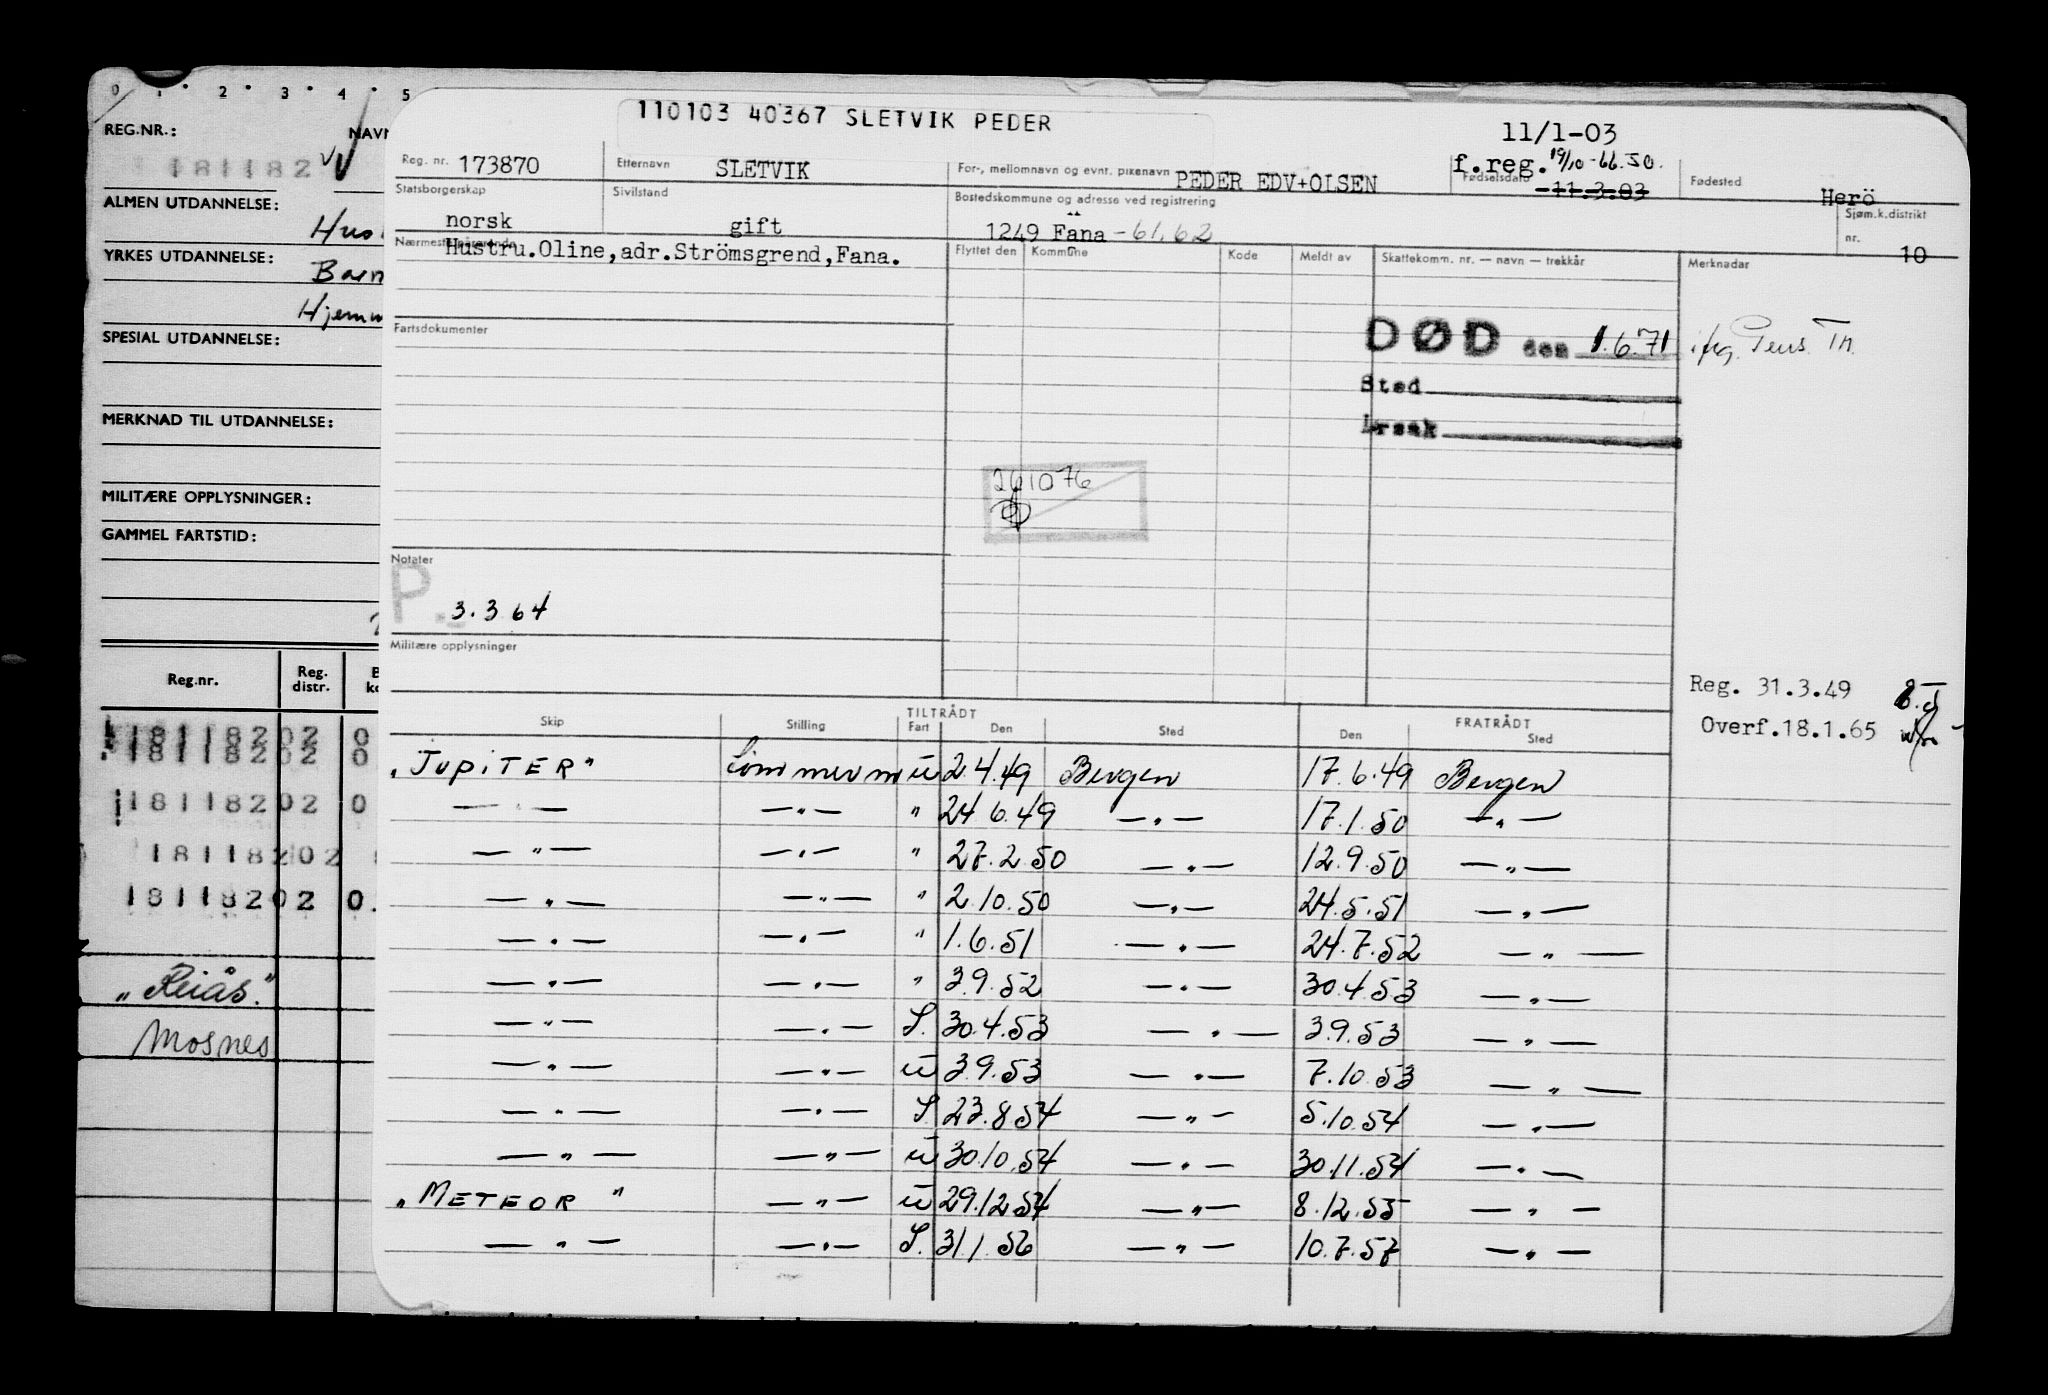 0 1 2 3 4 5
REG.NR.:
181182
ALMEN UTDANNELSE:
YRKES UTDANNELSE:
SPESIAL UTDANNELSE:
MERKNAD TIL UTDANNELSE:
MILITÆRE OPPLYSNINGER:
GAMMEL FARTSTID:
Reg.nr. Reg. distr.
18118202 0
18118202 0
18118202 0
18118202
18118202 0.
"Reiås."
Mosnes
110103 40367 SLETVIK PEDER
11/1-03
Reg. nr. 173870 Etternavn SLETVIK For-, mellomnavn og evnt. pikenavn PEDER EDV+OLSEN f.reg. 19/10-66.SO. Fødselsdato 11.3.03 Fødested Herö
Statsborgerskap norsk Sivilstand gift Bostedskommune og adresse ved registrering 1249 Fana - 61.62 Sjøm.k.distrikt nr. 10
Nærmeste pårørende Hustru.Oline,adr.Strömsgrend,Fana. Flyttet den Kommune Kode Meldt av Skattekomm. nr. — navn — trekkår Merknadar
Fartsdokumenter
DØD den 1.6.71 ifig. Pens. Tr.
Sted
Årsak
261076
Notater
P. 3.3 64
Militære opplysninger
Reg. 31.3.49
Overf.18.1.65
TILTRÅDT FRATRÅDT
Skip Stilling Fart Den Sted Den Sted
"JUPITER" tömmerm u 2.4.49 Bergen 17.6.49 Bergen
— " — — " — " 24.6.49 — " — 17.1.50 — " —
— " — — " — " 27.2.50 — " — 12.9.50 — " —
— " — — " — " 2.10.50 — " — 24.5.51 — " —
— " — — " — " 1.6.51 — " — 24.7.52 — " —
— " — — " — " 3.9.52 — " — 30.4.53 — " —
— " — — " — S. 30.4.53 — " — 3.9.53 — " —
— " — — " — u 3.9.53 — " — 7.10.53 — " —
— " — — " — S 23.8.54 — " — 5.10.54 — " —
— " — — " — u 30.10.54 — " — 30.11.54 — " —
"METEOR" — " — u 29.12.54 — " — 8.12.55 — " —
— " — — " — S. 31.1.56 — " — 10.7.57 — " —